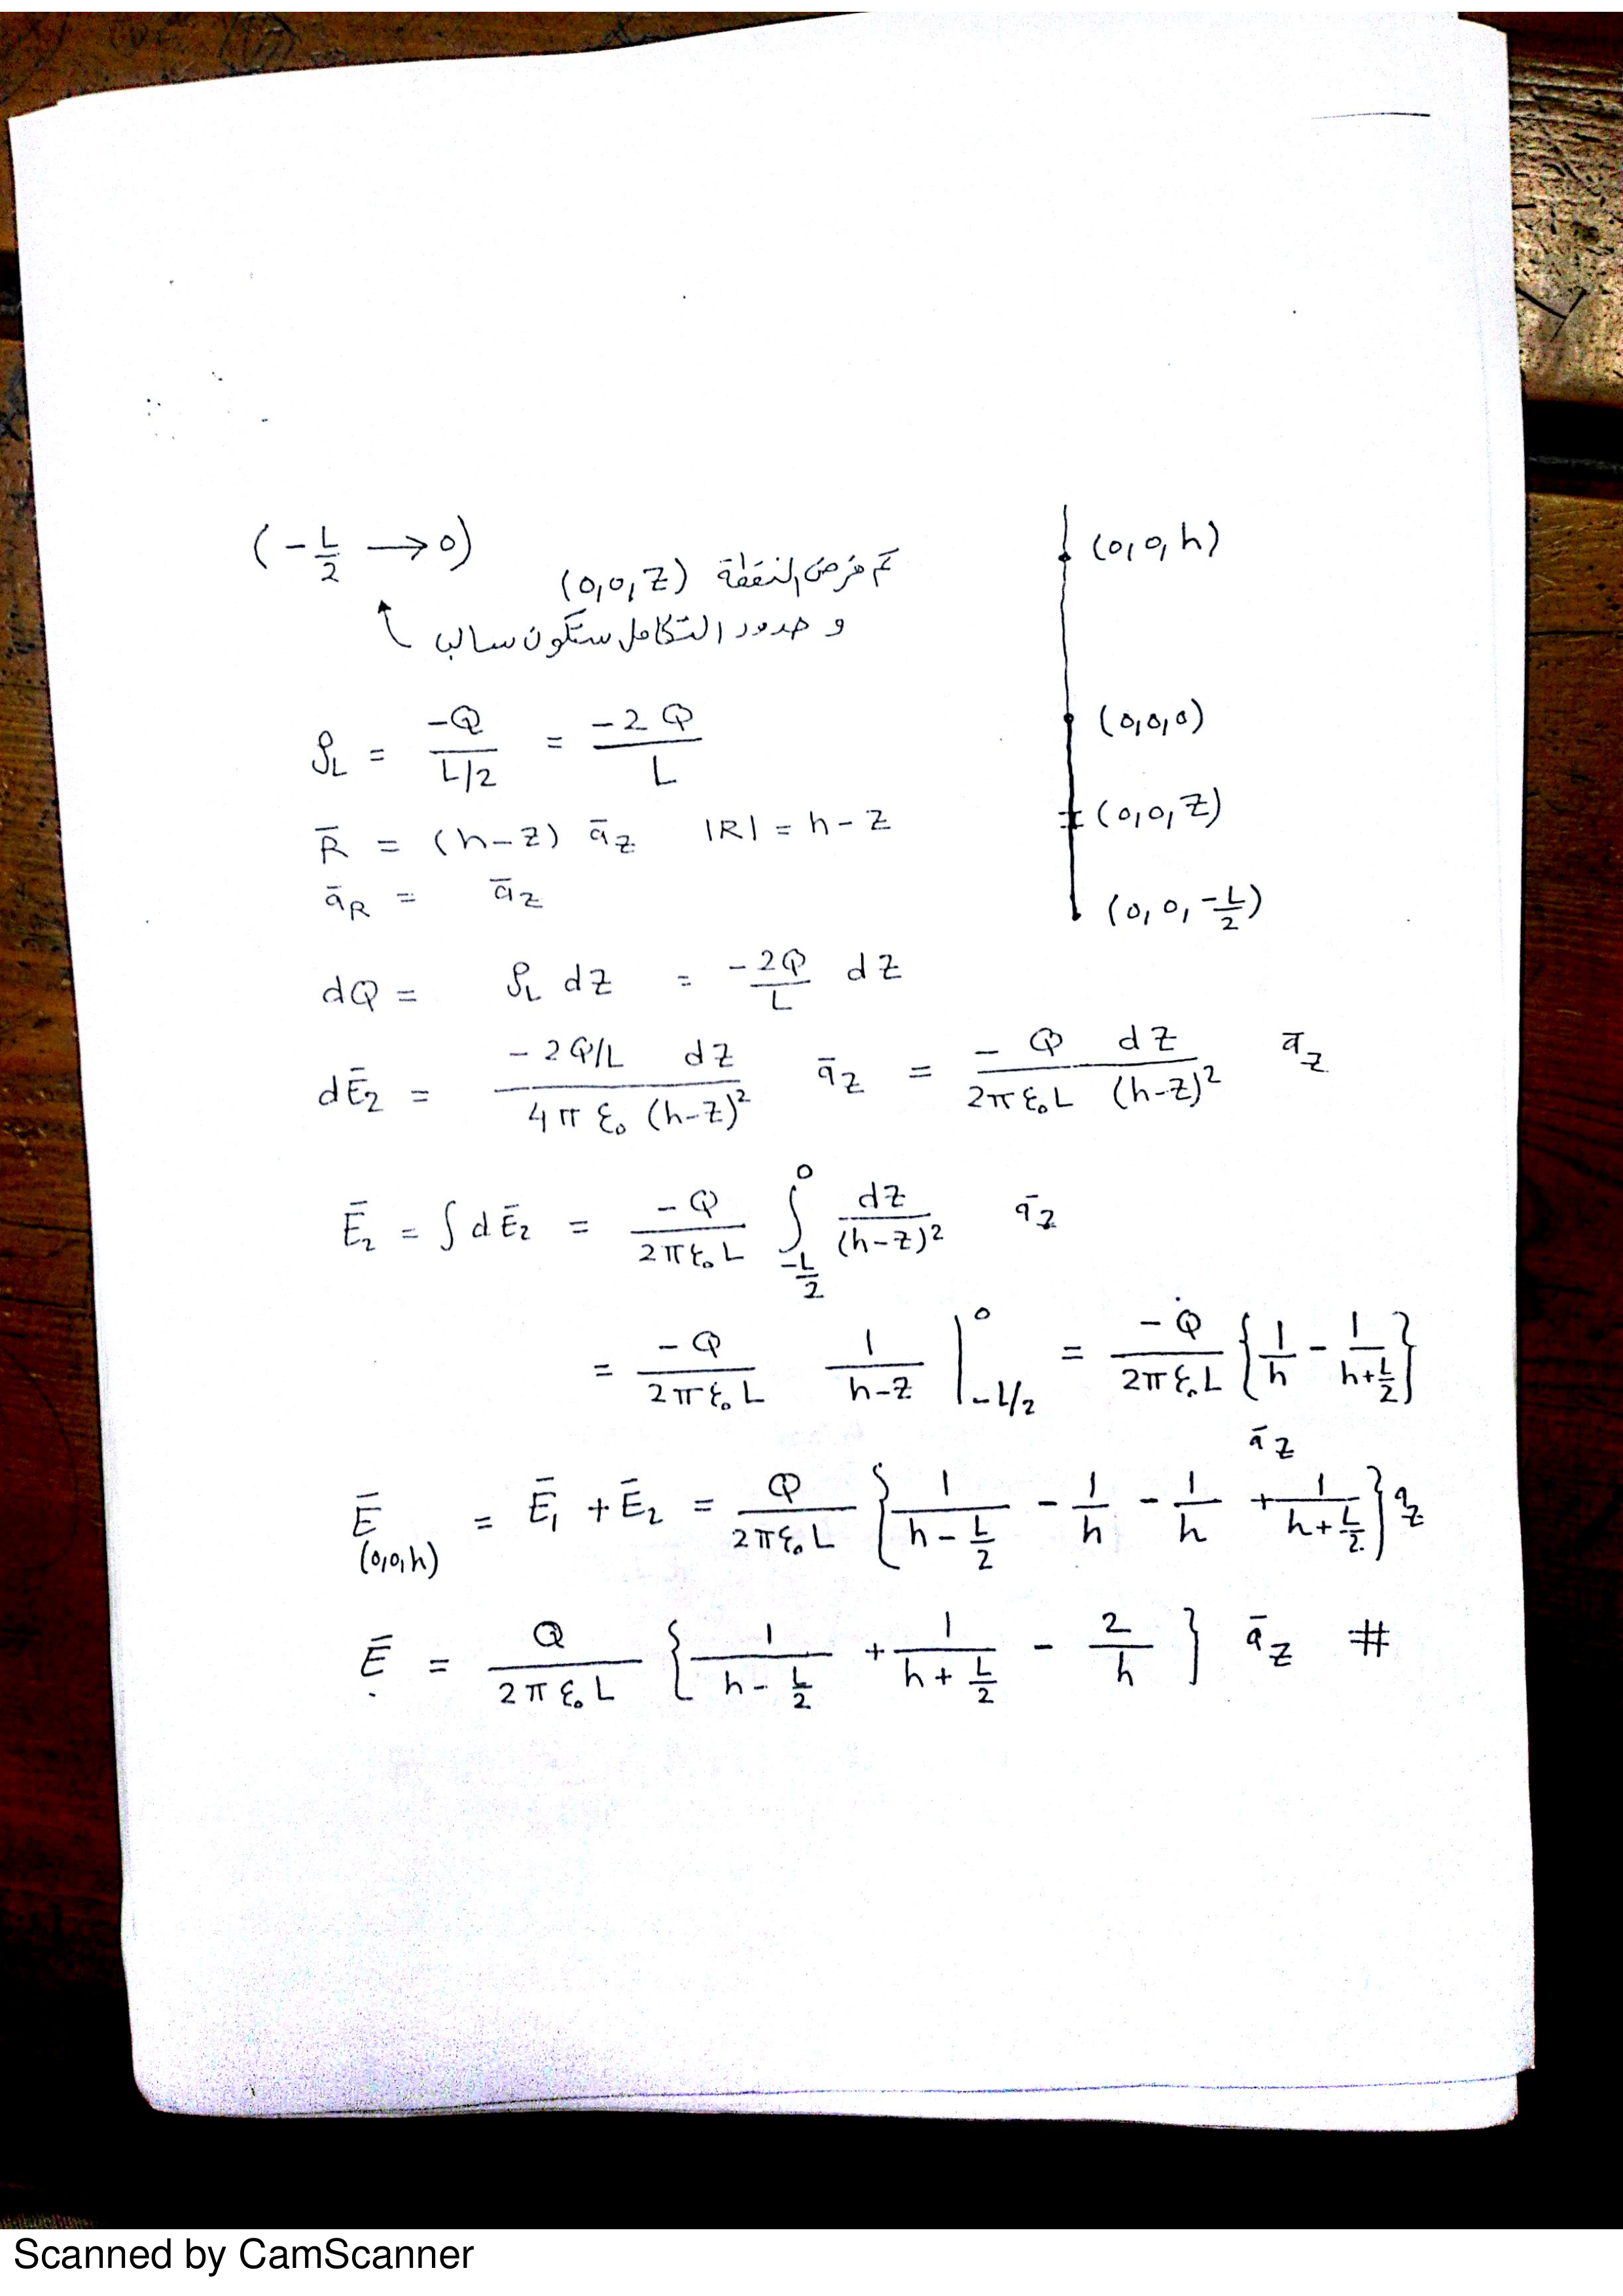 (-L/2 → 0)
تم فرض النقطة (0,0,Z)
و حدود التكامل ستكون سالب
(0,0,h)
(0,0,0)
(0,0,Z)
(0,0,-L/2)
ρL = -Q / L/2 = -2Q / L
R̄ = (h-Z) āz |R| = h-Z
āR = āz
dQ = ρL dZ = -2Q/L dZ
dĒ2 = -2Q/L dZ / 4π ε₀ (h-Z)² āz = -Q dZ / 2π ε₀ L (h-Z)² āz
Ē2 = ∫ dĒ2 = -Q / 2π ε₀ L ∫_{-L/2}^{0} dZ / (h-Z)² āz
= -Q / 2π ε₀ L 1 / h-Z |_{-L/2}^{0} = -Q / 2π ε₀ L {1/h - 1/(h+L/2)} āz
Ē(0,0,h) = Ē1 + Ē2 = Q / 2π ε₀ L {1/(h-L/2) - 1/h - 1/h + 1/(h+L/2)} āz
Ē = Q / 2π ε₀ L {1/(h-L/2) + 1/(h+L/2) - 2/h} āz #
Scanned by CamScanner